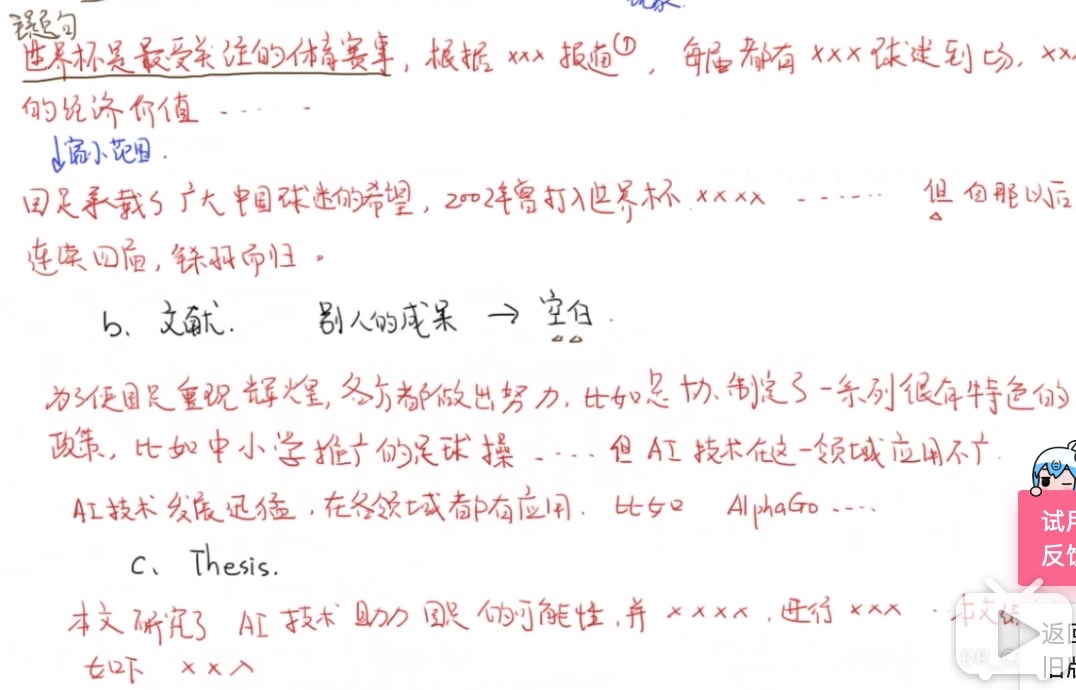 课题句
世界杯是最受关注的体育赛事，根据 xxx 报道①，每届都有 xxx 球迷到场，xx
的经济价值 ......
↓缩小范围.
国足承载了广大中国球迷的希望，2002年曾打入世界杯 xxxx ...... 但自那以后
连续四届，铩羽而归。
b、文献. 别人的成果 → 空白.
为了使国足重现辉煌，各方都做出努力，比如足协，制定了一系列很有特色的
政策，比如中小学推广的足球操 ..... 但AI技术在这一领域应用不广.
AI技术发展迅猛，在各领域都有应用. 比如 AlphaGo ....
c、Thesis.
本文研究了AI技术助力国足的可能性，并 xxxx，进行 xxx 本文
如下 xxx
试用
反馈
返回
旧版